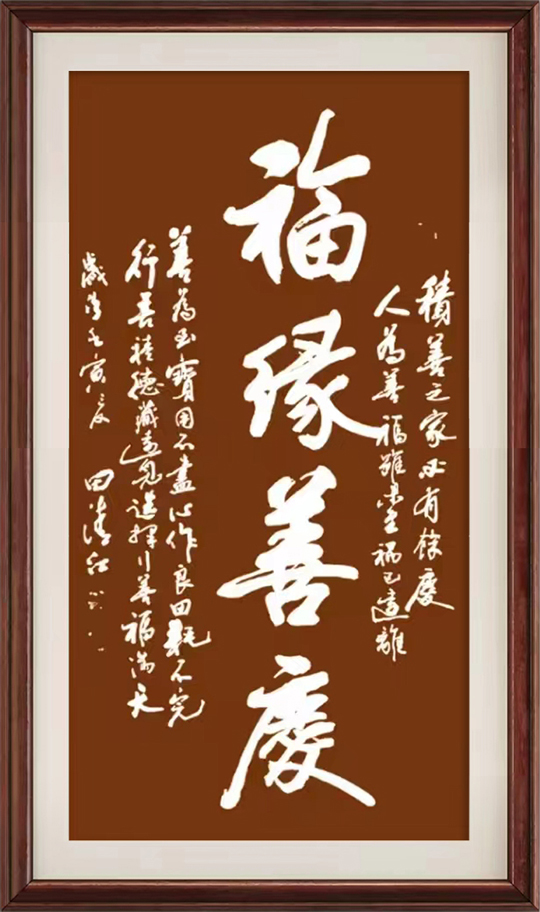 積善之家必有餘慶
人為善福雖未至禍已遠離
福緣善慶
善為至寶用不盡心作良田耕不完
行善積德藏遠見選擇行善福滿天
歲次壬寅 田清